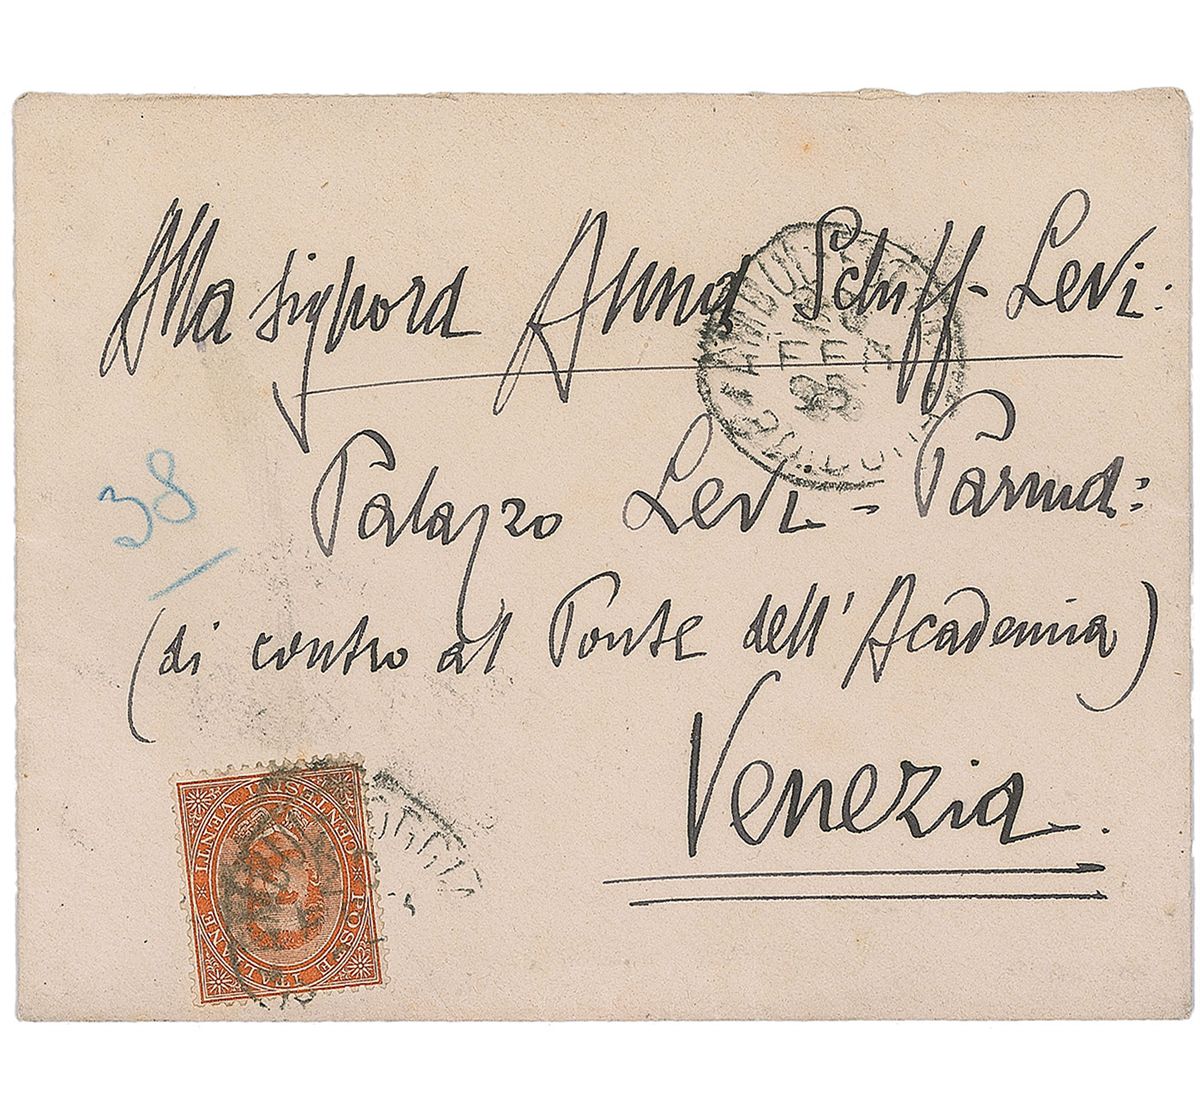 Alla signora Anna Schiff-Levi:
Palazzo Levi - Parma:
38
(di contro al Ponte dell'Accademia)
Venezia.
CENTESIMI VENTI
POSTE ITALIANE
FEB
95